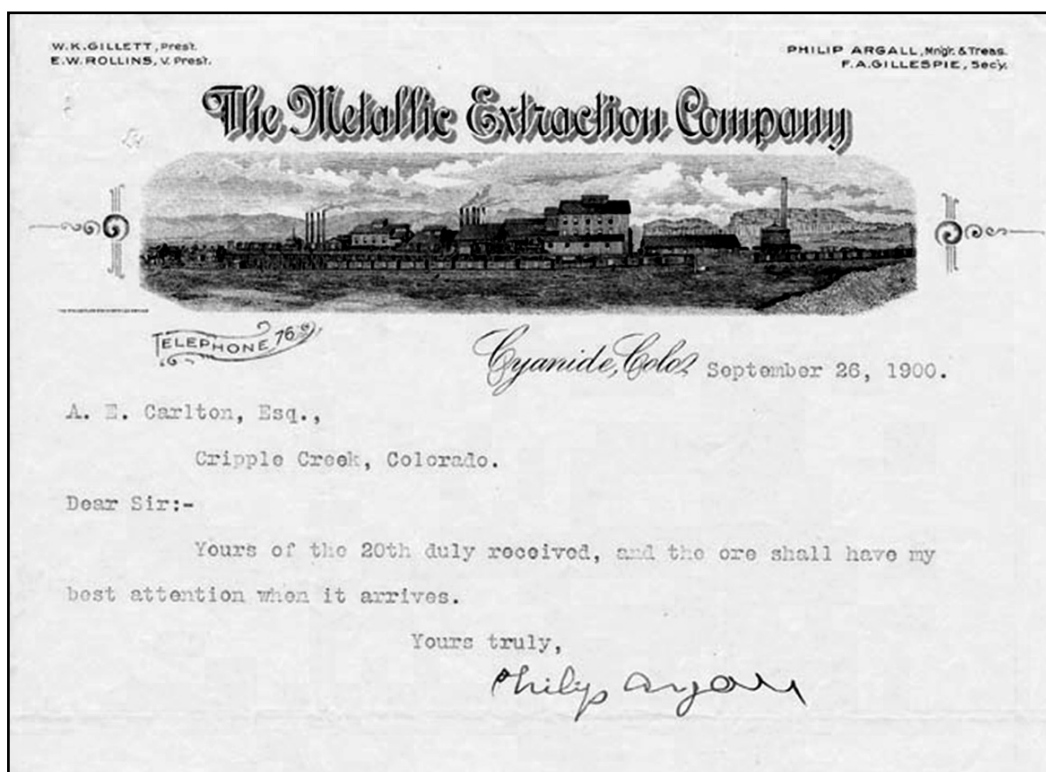 W.K.GILLETT, Prest.
E.W.ROLLINS, V. Prest.
PHILIP ARGALL, Mng'r. & Treas.
F.A.GILLESPIE, Sec'y.
The Metallic Extraction Company
TELEPHONE 76
Cyanide, Colo. September 26, 1900.
A. E. Carlton, Esq.,
Cripple Creek, Colorado.
Dear Sir:-
Yours of the 20th duly received, and the ore shall have my
best attention when it arrives.
Yours truly,
Philip Argall